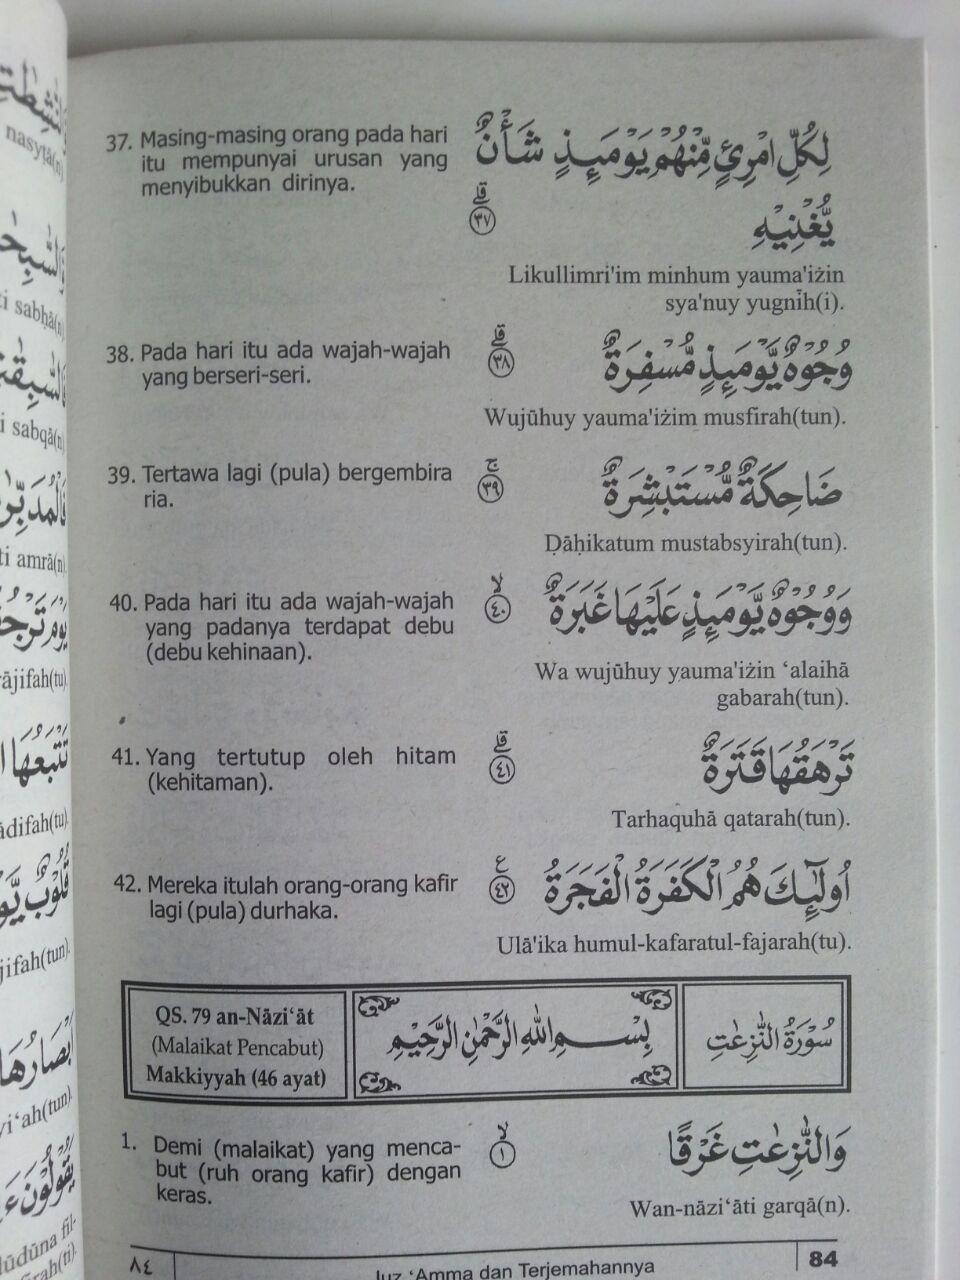 37. Masing-masing orang pada hari
itu mempunyai urusan yang
menyibukkan dirinya.
لِكُلِّ امْرِئٍ مِّنْهُمْ يَوْمَئِذٍ شَأْنٌ
يُّغْنِيْهِ ۗ ٣٧
Likullimri'im minhum yauma'iżin
sya'nuy yugnīh(i).
38. Pada hari itu ada wajah-wajah
yang berseri-seri.
وُجُوْهٌ يَّوْمَئِذٍ مُّسْفِرَةٌ ۗ ٣٨
Wujūhuy yauma'iżim musfirah(tun).
39. Tertawa lagi (pula) bergembira
ria.
ضَاحِكَةٌ مُّسْتَبْشِرَةٌ ۚ ٣٩
Ḍāḥikatum mustabsyirah(tun).
40. Pada hari itu ada wajah-wajah
yang padanya terdapat debu
(debu kehinaan).
وَوُجُوْهٌ يَّوْمَئِذٍ عَلَيْهَا غَبَرَةٌ ۙ ٤٠
Wa wujūhuy yauma'iżin ‘alaihā
gabarah(tun).
41. Yang tertutup oleh hitam
(kehitaman).
تَرْهَقُهَا قَتَرَةٌ ۗ ٤١
Tarhaquhā qatarah(tun).
42. Mereka itulah orang-orang kafir
lagi (pula) durhaka.
اُولٰۤىِٕكَ هُمُ الْكَفَرَةُ الْفَجَرَةُ ع ٤٢
Ulā'ika humul-kafaratul-fajarah(tu).
QS. 79 an-Nāzi‘āt
(Malaikat Pencabut)
Makkiyyah (46 ayat)
بِسْمِ اللّٰهِ الرَّحْمٰنِ الرَّحِيْمِ
سُوْرَةُ النّٰزِعٰتِ
1. Demi (malaikat) yang menca-
but (ruh orang kafir) dengan
keras.
وَالنّٰزِعٰتِ غَرْقًا ۙ ١
Wan-nāzi‘āti garqā(n).
٨٤
Juz ‘Amma dan Terjemahannya
84